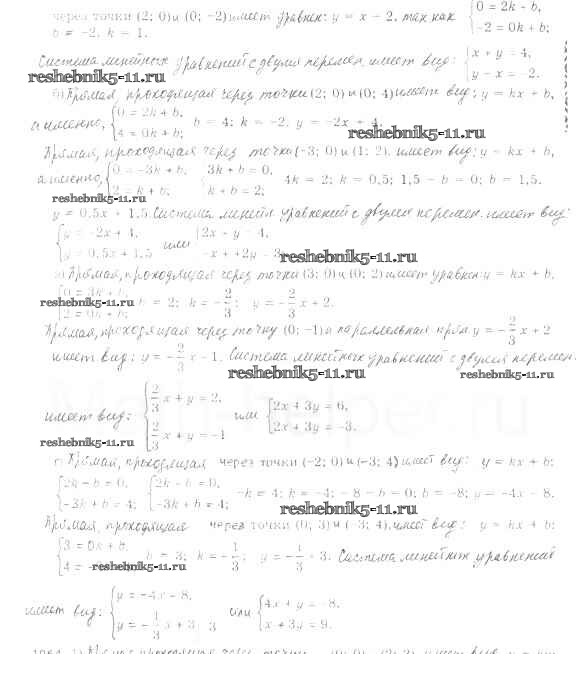 через точки (2; 0) и (0; −2) имеет уравнен: y = x − 2, так как {0 = 2k + b,
b = −2, k = 1. −2 = 0k + b;
Система линейных уравнений с двумя перемен. имеет вид: {x + y = 4,
reshebnik5-11.ru y − x = −2.
б) Прямая, проходящая через точки (2; 0) и (0; 4) имеет вид: y = kx + b,
а именно, {0 = 2k + b, b = 4; k = −2, y = −2x + 4. reshebnik5-11.ru
4 = 0k + b;
Прямая, проходящая через точки (−3; 0) и (1; 2), имеет вид: y = kx + b,
а именно, {0 = −3k + b, {3k + b = 0, 4k = 2; k = 0,5; 1,5 − b = 0; b = 1,5.
2 = k + b; k + b = 2;
reshebnik5-11.ru
y = 0,5x + 1,5. Система линейн уравнений с двумя перемен. имеет вид:
{y = −2x + 4, или {2x + y = 4,
y = 0,5x + 1,5 −x + 2y = 3. reshebnik5-11.ru
в) Прямая, проходящая через точки (3; 0) и (0; 2) имеет уравнен: y = kx + b,
{0 = 3k + b,
reshebnik5-11.ru b = 2; k = −2/3; y = −2/3 x + 2.
2 = 0k + b;
Прямая, проходящая через точку (0; −1) и параллельная прям. y = −2/3 x + 2
имеет вид: y = −2/3 x − 1. Система линейных уравнений с двумя перемен.
reshebnik5-11.ru reshebnik5-11.ru
имеет вид: {2/3 x + y = 2, или {2x + 3y = 6,
2/3 x + y = −1 2x + 3y = −3.
reshebnik5-11.ru
г) Прямая, проходящая через точки (−2; 0) и (−3; 4) имеет вид: y = kx + b;
{2k − b = 0, {2k − b = 0, −k = 4; k = −4; −8 − b = 0; b = −8; y = −4x − 8.
−3k + b = 4; −3k + b = 4; reshebnik5-11.ru
Прямая, проходящая через точки (0; 3) и (−3; 4), имеет вид: y = kx + b:
{3 = 0x + b, b = 3; k = −1/3; y = −1/3 + 3. Система линейных уравнений
4 = reshebnik5-11.ru
имеет вид: {y = −4x − 8, или {4x + y = −8,
y = −1/3 x + 3, 3 x + 3y = 9.